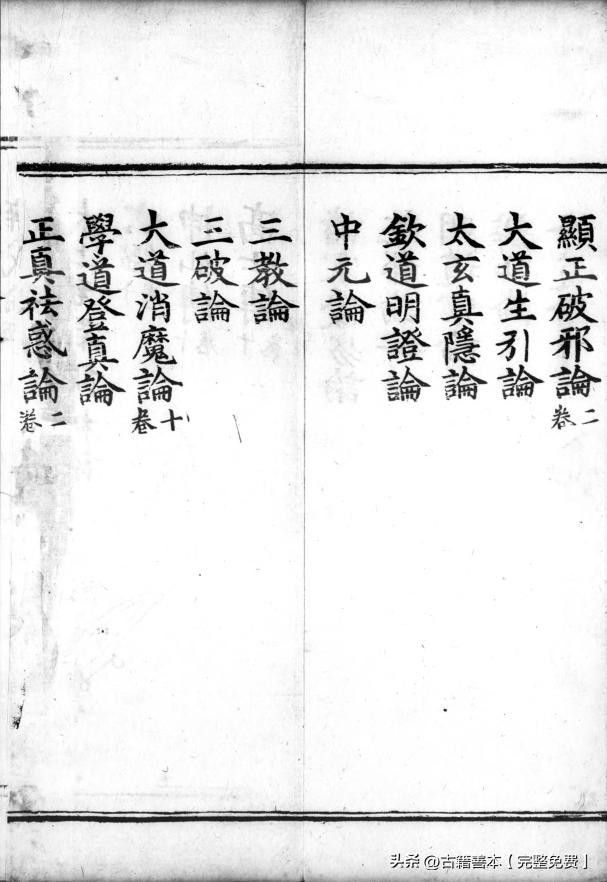 顯正破邪論二卷
大道生引論
太玄真隱論
欽道明證論
中元論
三教論
三破論
大道消魔論十卷
學道登真論
正真祛惑論二卷
头条 @古籍善本【完整免费】